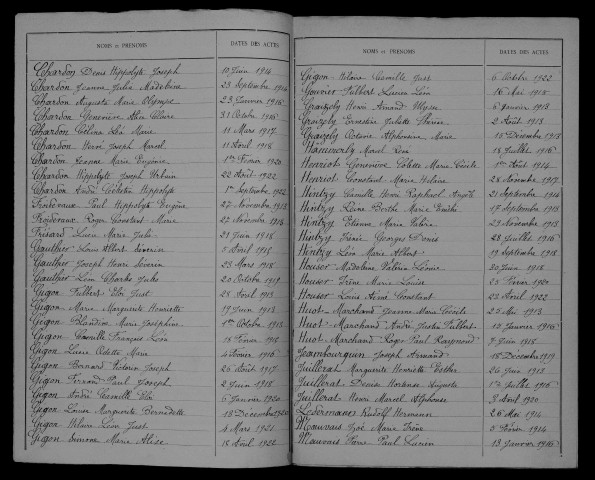 NOMS ET PRÉNOMS DATES DES ACTES
Chardon Denis Hippolyte Joseph 10 Juin 1914
Chardon Jeanne Julia Madeleine 23 Septembre 1914
Chardon Auguste Marie Olympe 23 Janvier 1916
Chardon Geneviève Claire 31 Octobre 1916
Chardon Célina Marie 11 Mars 1917
Chardon Henri Joseph Marcel 11 Avril 1918
Chardon Jeanne Marie Eugénie 1er Février 1920
Chardon Hippolyte Joseph Urbain 22 Août 1922
Chardon André Célestin Hippolyte 1er Septembre 1922
Froidevaux Paul Hippolyte Eugène 27 Novembre 1913
Froidevaux Roger Constant Marie 22 Novembre 1918
Frésard Lucie Marie Julia 21 Juin 1914
Gauthier Louis Albert Séverin 5 Avril 1918
Gauthier Joseph Henri Séverin 23 Mars 1918
Gauthier Léon Charles Jules 20 Octobre 1919
Gigon Fulbert Eloi Just 28 Avril 1913
Gigon Marie Marguerite Henriette 19 Juin 1913
Gigon Blandine Marie Joséphine 1er Octobre 1913
Gigon Camille François Léon 15 Février 1918
Gigon Lucie Odette Marie 4 Février 1916
Gigon Bernard Victorin Joseph 26 Août 1917
Gigon Fernand Paul Joseph 2 Juin 1918
Gigon André Camille Eloi 6 Janvier 1920
Gigon Louise Marguerite Bernadette 18 Décembre 1920
Gigon Hilaire Léon Just 4 Mars 1921
Gigon Simone Marie Alice 18 Avril 1922
NOMS ET PRÉNOMS DATES DES ACTES
Gigon Hélène Camille Just 6 Octobre 1922
Gouvier Fulbert Lucien Léon 16 Mai 1918
Graizely Henri Armand Ulysse 5 Janvier 1913
Graizely Ernestine Juliette 2 Août 1913
Graizely Octavie Alphonsine Marie 15 Décembre 1918
Marcel René 18 Juillet 1916
Henriot Geneviève Colette Marie Cécile 1er Août 1914
Henriot Constant Marie Hilaire 28 Novembre 1917
Hintzy Camille Henri Raphaël 21 Septembre 1914
Hintzy Reine Berthe Marie Emélie 17 Septembre 1918
Hintzy Etienne Marie Valérie 29 Novembre 1918
Hintzy Georges Denis 28 Juillet 1916
Hintzy Léon Marie Albert 19 Septembre 1918
Houser Madeleine Valérie Léonie 30 Juin 1918
Houser Irène Marie Louise 25 Février 1920
Houser Louis Aimé Constant 23 Avril 1922
Huot-Marchand Jeanne Marie Cécile 23 Mai 1913
Huot-Marchand André Fulbert 12 Janvier 1916
Huot-Marchand Roger Paul Raymond 7 Juin 1918
Jeambourquin Joseph Armand 18 Décembre 1919
Juillerat Marguerite Henriette Esther 26 Juin 1913
Juillerat Denise Hortense Augusta 1er Juillet 1916
Juillerat Henri Marcel Alphonse 3 Avril 1920
Ledermann Rudolf Hermann 26 Mai 1914
Mauvais Zoé Marie Irène 5 Février 1914
Mauvais Pierre Paul Lucien 13 Janvier 1916